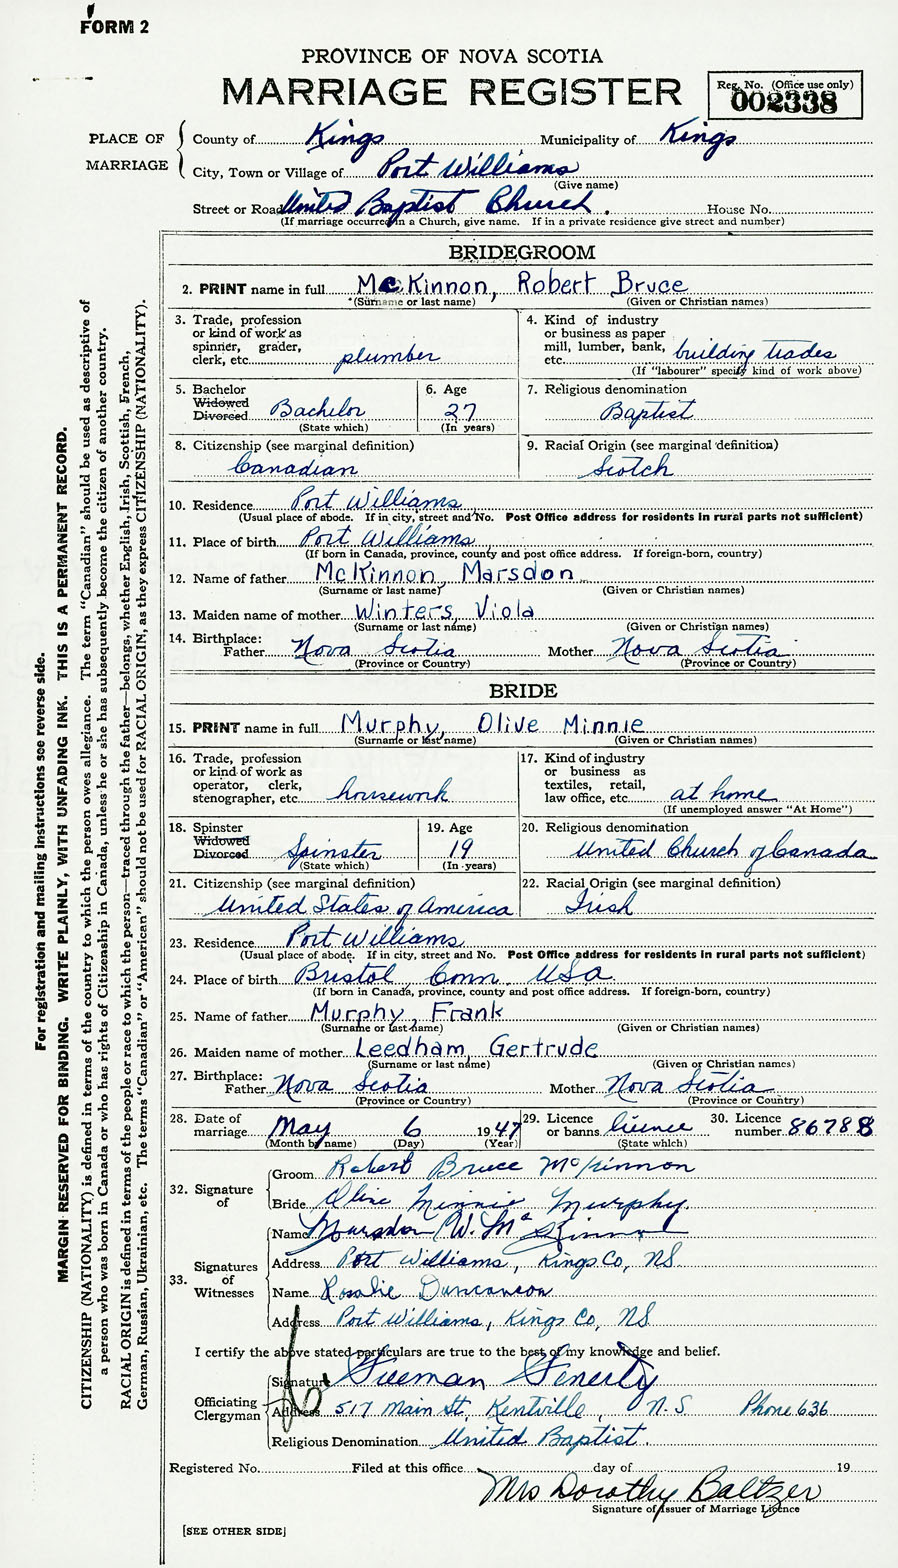 FORM 2
PROVINCE OF NOVA SCOTIA
MARRIAGE REGISTER
Reg. No. (Office use only)
002338
PLACE OF MARRIAGE
County of Kings Municipality of Kings
City, Town or Village of Port Williams
(Give name)
Street or Road United Baptist Church. House No.
(If marriage occurred in a Church, give name. If in a private residence give street and number)
BRIDEGROOM
2. PRINT name in full McKinnon, Robert Bruce
(Surname or last name) (Given or Christian names)
3. Trade, profession or kind of work as spinner, grader, clerk, etc. plumber
4. Kind of industry or business as paper mill, lumber, bank, etc. building trades
(If "labourer" specify kind of work above)
5. Bachelor Widowed Divorced Bachelor
(State which)
6. Age 27
(In years)
7. Religious denomination
Baptist
8. Citizenship (see marginal definition)
Canadian
9. Racial Origin (see marginal definition)
Scotch
10. Residence Port Williams
(Usual place of abode. If in city, street and No. Post Office address for residents in rural parts not sufficient)
11. Place of birth Port Williams
(If born in Canada, province, county and post office address. If foreign-born, country)
12. Name of father McKinnon, Marsdon
(Surname or last name) (Given or Christian names)
13. Maiden name of mother Winters, Viola
(Surname or last name) (Given or Christian names)
14. Birthplace: Father Nova Scotia Mother Nova Scotia
(Province or Country) (Province or Country)
BRIDE
15. PRINT name in full Murphy, Olive Minnie
(Surname or last name) (Given or Christian names)
16. Trade, profession or kind of work as operator, clerk, stenographer, etc. housework
17. Kind of industry or business as textiles, retail, law office, etc. at home
(If unemployed answer "At Home")
18. Spinster Widowed Divorced Spinster
(State which)
19. Age 19
(In years)
20. Religious denomination
United Church of Canada
21. Citizenship (see marginal definition)
United States of America
22. Racial Origin (see marginal definition)
Irish
23. Residence Port Williams
(Usual place of abode. If in city, street and No. Post Office address for residents in rural parts not sufficient)
24. Place of birth Bristol, Conn. USA
(If born in Canada, province, county and post office address. If foreign-born, country)
25. Name of father Murphy, Frank
(Surname or last name) (Given or Christian names)
26. Maiden name of mother Leedham, Gertrude
(Surname or last name) (Given or Christian names)
27. Birthplace: Father Nova Scotia Mother Nova Scotia
(Province or Country) (Province or Country)
28. Date of marriage May 6 1947
(Month by name) (Day) (Year)
29. Licence or banns licence
(State which)
30. Licence number 86788
32. Signature of
Groom Robert Bruce McKinnon
Bride Olive Minnie Murphy.
33. Signatures of Witnesses
Name Marsdon W. McKinnon
Address Port Williams, Kings Co, NS
Name Rosalie Duncanson
Address Port Williams, Kings Co, NS
I certify the above stated particulars are true to the best of my knowledge and belief.
Officiating Clergyman
Signature Freeman Fenerty
Address 517 Main St, Kentville, N.S Phone 636
Religious Denomination United Baptist.
Registered No. Filed at this office day of 19
Mrs Dorothy Baltzer
Signature of Issuer of Marriage Licence
[SEE OTHER SIDE]
For registration and mailing instructions see reverse side.
MARGIN RESERVED FOR BINDING. WRITE PLAINLY, WITH UNFADING INK. THIS IS A PERMANENT RECORD.
CITIZENSHIP (NATIONALITY) is defined in terms of the country to which the person owes allegiance. The term "Canadian" should be used as descriptive of
a person who was born in Canada or who has rights of Citizenship in Canada, unless he or she has subsequently become the citizen of another country.
RACIAL ORIGIN is defined in terms of the people or race to which the person—traced through the father—belongs, whether English, Irish, Scottish, French,
German, Russian, Ukrainian, etc. The terms "Canadian" or "American" should not be used for RACIAL ORIGIN, as they express CITIZENSHIP (NATIONALITY).